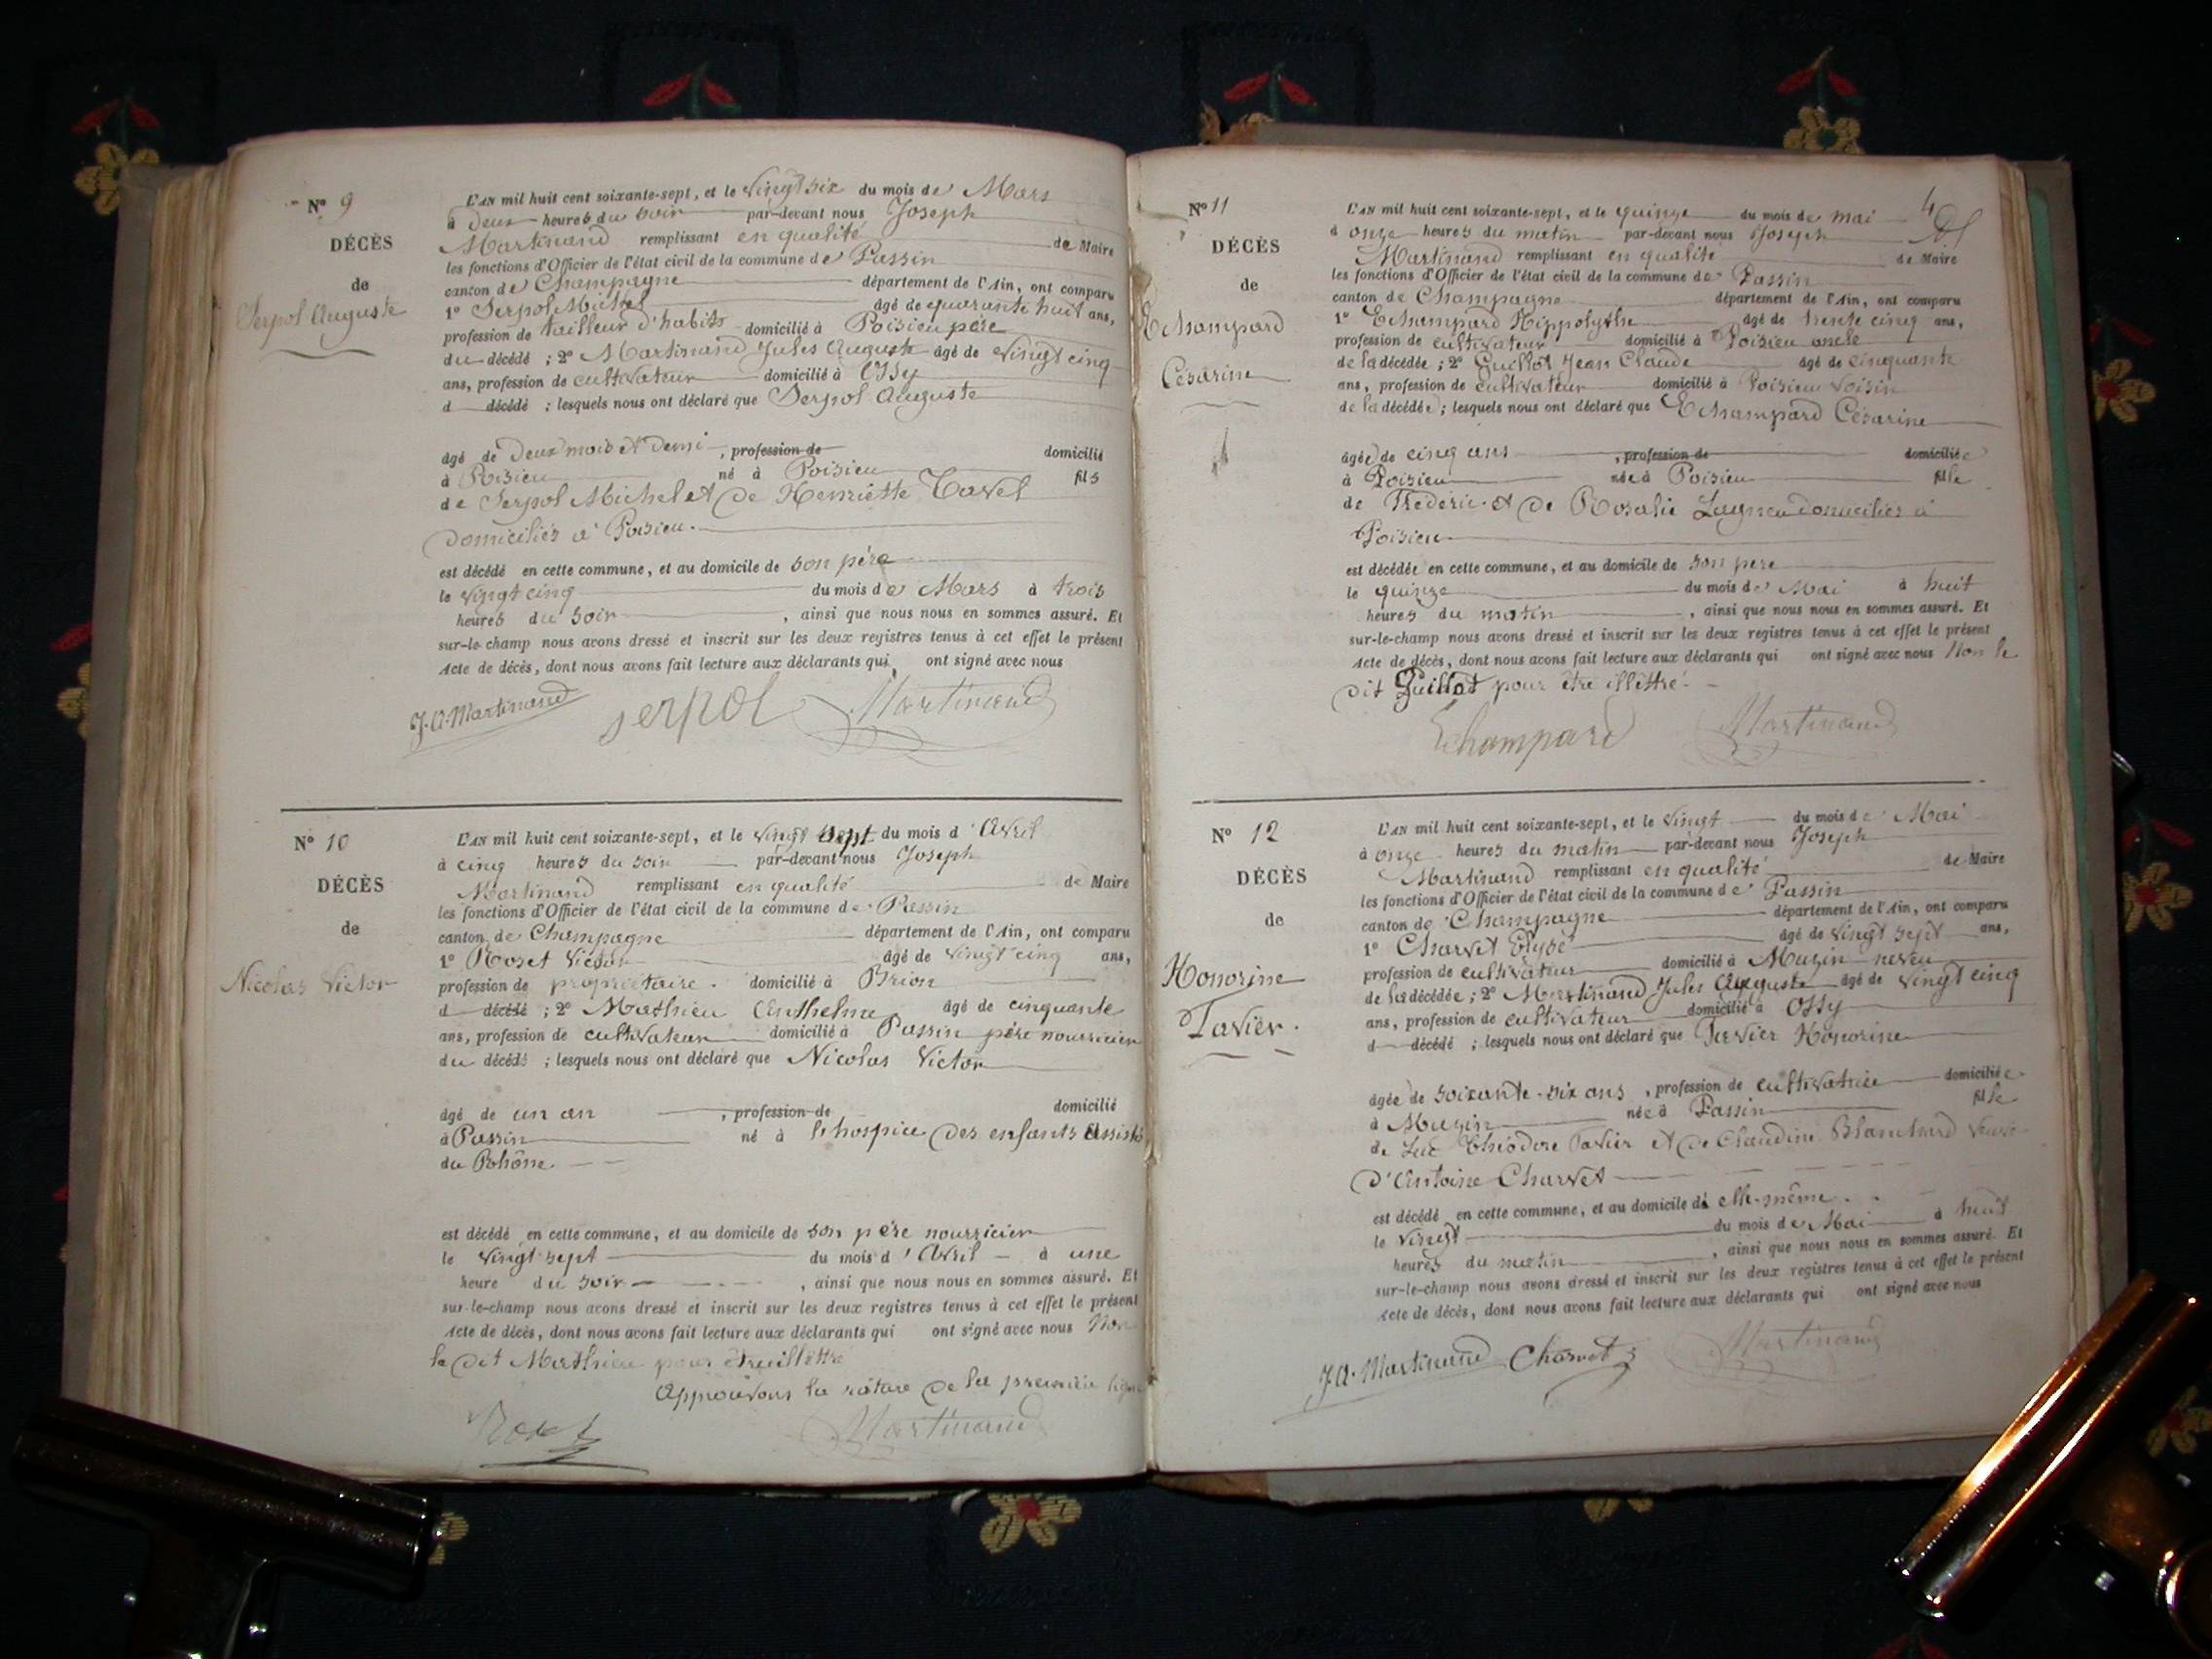 N° 9
DÉCÈS
de
Serpol Auguste
L'AN mil huit cent soixante-sept, et le vingt six du mois de Mars
à deux heures du soir par-devant nous Joseph
Martinand remplissant en qualité de Maire
les fonctions d'Officier de l'état civil de la commune de Passin
canton de Champagne département de l'Ain, ont comparu
1° Serpol Michel âgé de quarante huit ans,
profession de tailleur d'habits domicilié à Poisieu père
du décédé ; 2° Martinand Jules Auguste âgé de vingt cinq
ans, profession de cultivateur domicilié à Ossy
d décédé ; lesquels nous ont déclaré que Serpol Auguste
âgé de deux mois et demi , profession de domicilié
à Poisieu né à Poisieu fils
de Serpol Michel et de Henriette Tavel
domiciliés à Poisieu.
est décédé en cette commune, et au domicile de son père
le vingt cinq du mois de Mars à trois
heures du soir , ainsi que nous nous en sommes assuré. Et
sur-le-champ nous avons dressé et inscrit sur les deux registres tenus à cet effet le présent
Acte de décès, dont nous avons fait lecture aux déclarants qui ont signé avec nous
J. A. Martinand serpol Martinand
N° 10
DÉCÈS
de
Nicolas Victor
L'AN mil huit cent soixante-sept, et le vingt sept du mois d'Avril
à cinq heures du soir par-devant nous Joseph
Martinand remplissant en qualité de Maire
les fonctions d'Officier de l'état civil de la commune de Passin
canton de Champagne département de l'Ain, ont comparu
1° Roset Victor âgé de vingt cinq ans,
profession de propriétaire. domicilié à Brion
d décédé ; 2° Mathieu Anthelme âgé de cinquante
ans, profession de cultivateur domicilié à Passin père nourricier
du décédé ; lesquels nous ont déclaré que Nicolas Victor
âgé de un an , profession de domicilié
à Passin né à l'hospice des enfants assistés
du Rhône
est décédé en cette commune, et au domicile de son père nourricier
le vingt sept du mois d'Avril à une
heure du soir , ainsi que nous nous en sommes assuré. Et
sur-le-champ nous avons dressé et inscrit sur les deux registres tenus à cet effet le présent
Acte de décès, dont nous avons fait lecture aux déclarants qui ont signé avec nous Non
le dit Mathieu pour être illêttré
Approuvons la râture de la première ligne
Roset Martinand
N° 11
DÉCÈS
de
Echampard
Césarine
4
L'AN mil huit cent soixante-sept, et le quinze du mois de mai
à onze heures du matin par-devant nous Joseph
Martinand remplissant en qualité de Maire
les fonctions d'Officier de l'état civil de la commune de Passin
canton de Champagne département de l'Ain, ont comparu
1° Echampard Hippolythe âgé de trente cinq ans,
profession de cultivateur domicilié à Poisieu oncle
de la décédée ; 2° Guillot Jean Claude âgé de cinquante
ans, profession de cultivateur domicilié à Poisieu voisin
de la décédée ; lesquels nous ont déclaré que Echampard Césarine
âgée de cinq ans , profession de domiciliée
à Poisieu née à Poisieu fille
de Frédéric et de Rosalie Lagneu domiciliés à
Poisieu
est décédée en cette commune, et au domicile de son père
le quinze du mois de Mai à huit
heures du matin , ainsi que nous nous en sommes assuré. Et
sur-le-champ nous avons dressé et inscrit sur les deux registres tenus à cet effet le présent
Acte de décès, dont nous avons fait lecture aux déclarants qui ont signé avec nous Non le
dit Guillot pour être illêttré.
Echampard Martinand
N° 12
DÉCÈS
de
Honorine
Tavier.
L'AN mil huit cent soixante-sept, et le vingt du mois de Mai
à onze heures du matin par-devant nous Joseph
Martinand remplissant en qualité de Maire
les fonctions d'Officier de l'état civil de la commune de Passin
canton de Champagne département de l'Ain, ont comparu
1° Charvet Elysé âgé de vingt sept ans,
profession de cultivateur domicilié à Muzin neveu
de la décédée ; 2° Martinand Jules Auguste âgé de vingt cinq
ans, profession de cultivateur domicilié à Ossy
d décédé ; lesquels nous ont déclaré que Tavier Honorine
âgée de soixante-six ans , profession de cultivatrice domiciliée
à Muzin née à Passin fille
de Luc Théodore Tavier et de Claudine Blanchard veuve
d'Antoine Charvet
est décédé en cette commune, et au domicile d'elle-même.
le vingt du mois de Mai à huit
heures du matin , ainsi que nous nous en sommes assuré. Et
sur-le-champ nous avons dressé et inscrit sur les deux registres tenus à cet effet le présent
Acte de décès, dont nous avons fait lecture aux déclarants qui ont signé avec nous
J. A. Martinand Charvet Martinand